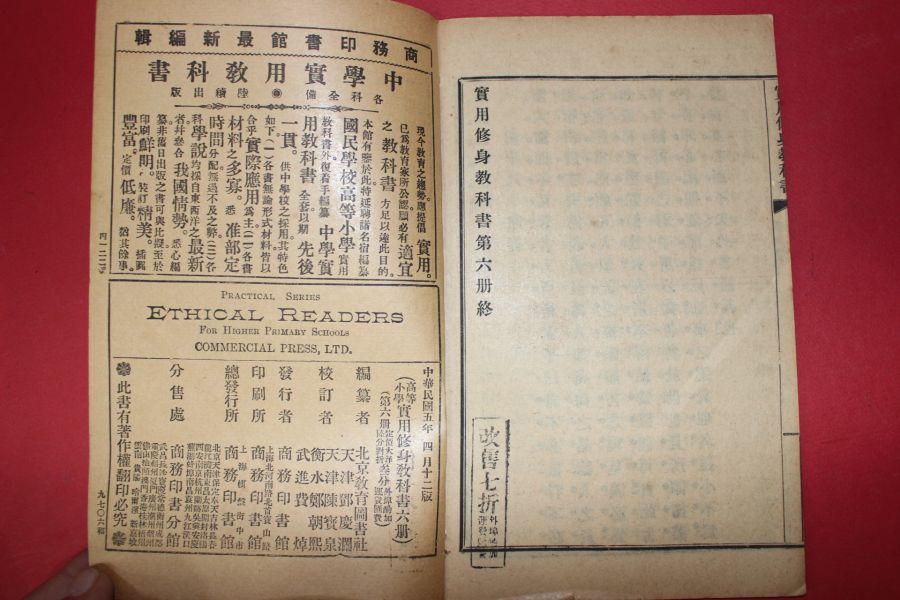 實用修身教科書第六册終
改售七折
商務印書館最新編輯
中學實用教科書
各科全備 陸續出版
現今教育之趨勢應提倡實用。
已爲教育家所公認顧必有適宜
之教科書方足以達此目的。
本館有鑒於此特延聘諸名宿編纂
國民學校高等小學實用
教科書外復着手編纂中學實
用教科書全套以期先後
一貫。供中學校之採用其特色
如下。(一)各書無論形式材料皆以
合乎實際應用爲主(二)各書
材料之多寡。悉准部定
時間分配無過不及之弊。(三)各
科學說均採自東西洋之最新
者幷參合我國情勢。悉心編
纂非舊日出版之書可與比擬至於
印刷鮮明。裝訂精美。插圖
豐富。定價低廉。猶其餘事。
PRACTICAL SERIES
ETHICAL READERS
FOR HIGHER PRIMARY SCHOOLS
COMMERCIAL PRESS, LTD.
中華民國五年四月十二版
高等小學實用修身教科書六册
編纂者 北京教育圖書社
天津鄧慶瀾
校訂者 天津陳寶泉
衡水鄭朝熙
武進費焯
發行者 商務印書館
印刷所 商務印書館
總發行所 商務印書館
分售處 商務印書分館
此書有著作權翻印必究
九七〇六